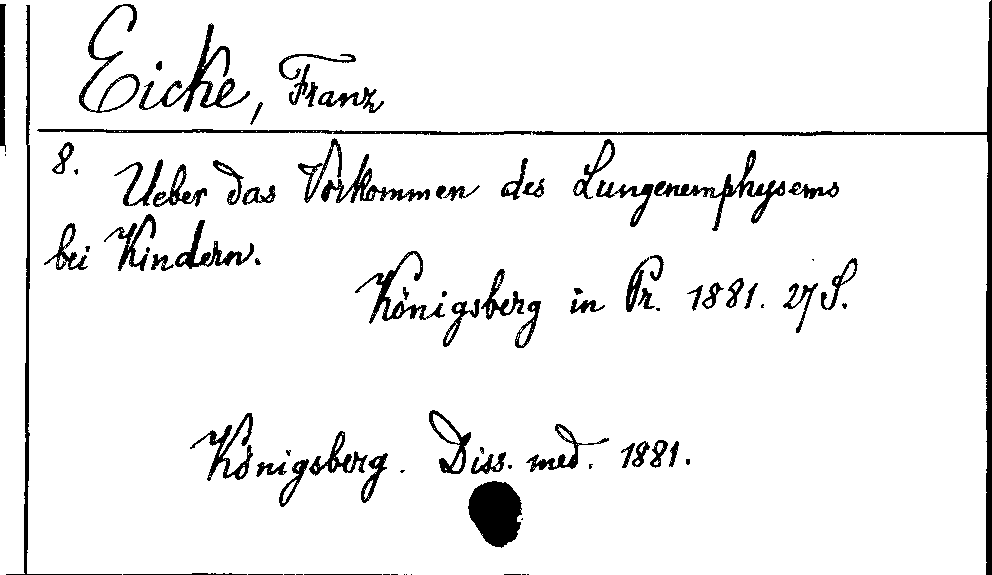 Eicke, Franz
8. Ueber das Vorkommen des Lungenemphysems
bei Kindern.
Königsberg in Pr. 1881. 27 S.
Königsberg. Diss. med. 1881.